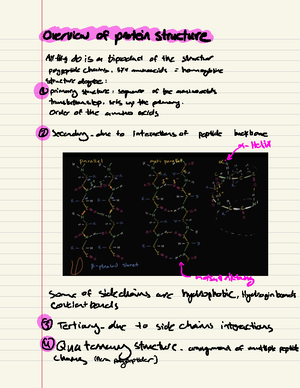 Overview of protein structure
All they do is a biproduct of the structure
polypeptide chains. 50+ aminoacids = homologise
structure degree:
① primary structure: sequence of the aminoacids
translation step. sets up the primary.
Order of the amino acids
② Secondary - due to interactions of peptide backbone
α-Helix
parallel
anti parallel
β-pleated sheet
Some of sidechains are hydrophobic, Hydrogin bonds
covalent bonds
③ Tertiary - due to side chains interactions
④ Quaternary structure - arrangement of multiple peptide
chains